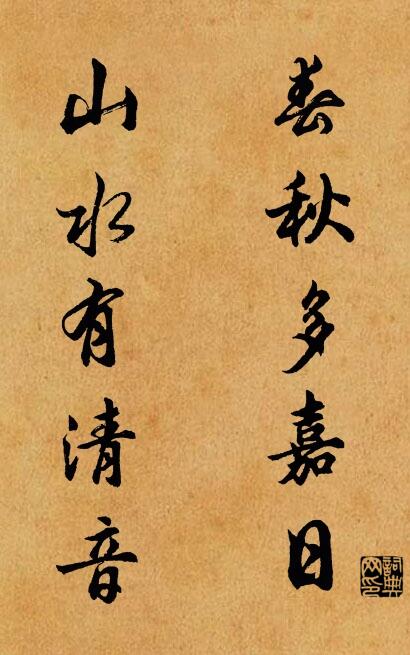 春秋多嘉日
山水有清音
詞典网印